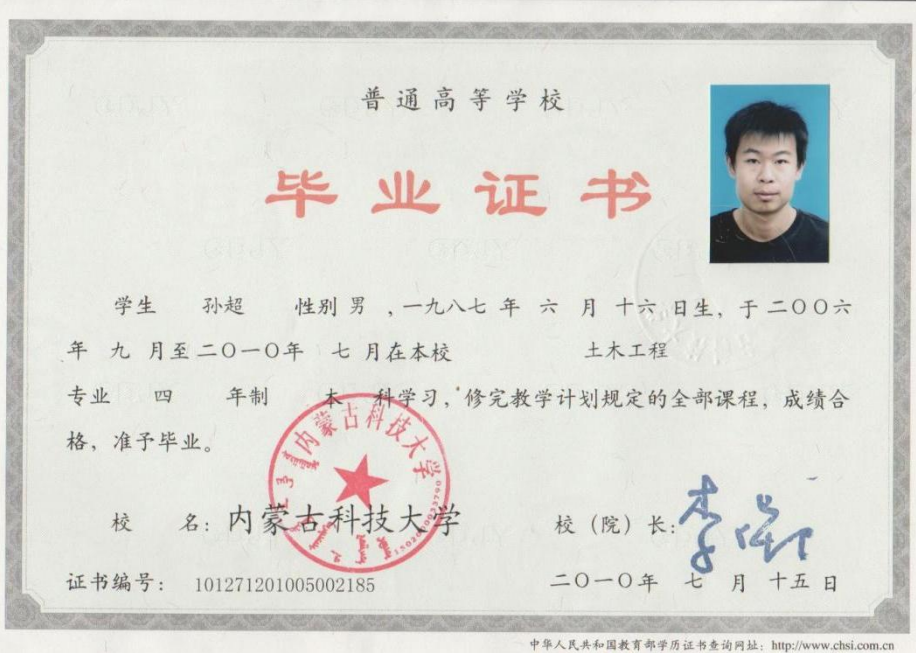 普通高等学校
毕业证书
学生 孙超 性别 男 ,一九八七 年 六 月 十六 日生，于 二〇〇六
年 九 月至 二〇一〇年 七 月在本校 土木工程
专业 四 年制 本 科学习，修完教学计划规定的全部课程，成绩合
格，准予毕业。
内蒙古科技大学
校 名：内蒙古科技大学
校（院）长：
证书编号： 101271201005002185
二〇一〇年 七 月 十五 日
中华人民共和国教育部学历证书查询网址：http://www.chsi.com.cn